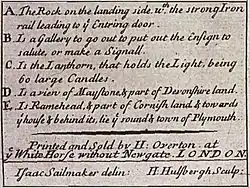 A. The Rock on the landing side. wth. the strong Iron
rail leading to ye Entring door.
B. Is a Gallery to go out to put out the Ensign to
salute, or make a Signall.
C. Is the Lanthorn, that holds the Light, being
60 large Candles.
D. Is a view of Maystone, & part of Devonshire land.
E. Is Ramehead, & part of Cornish land, & towards
ye house & behind it, lie ye sound & town of Plymouth.
Printed and Sold by H: Overton. at
ye White Horse without Newgate. LONDON.
Isaac Sailmaker delin: H. Hulsbergh Sculp.